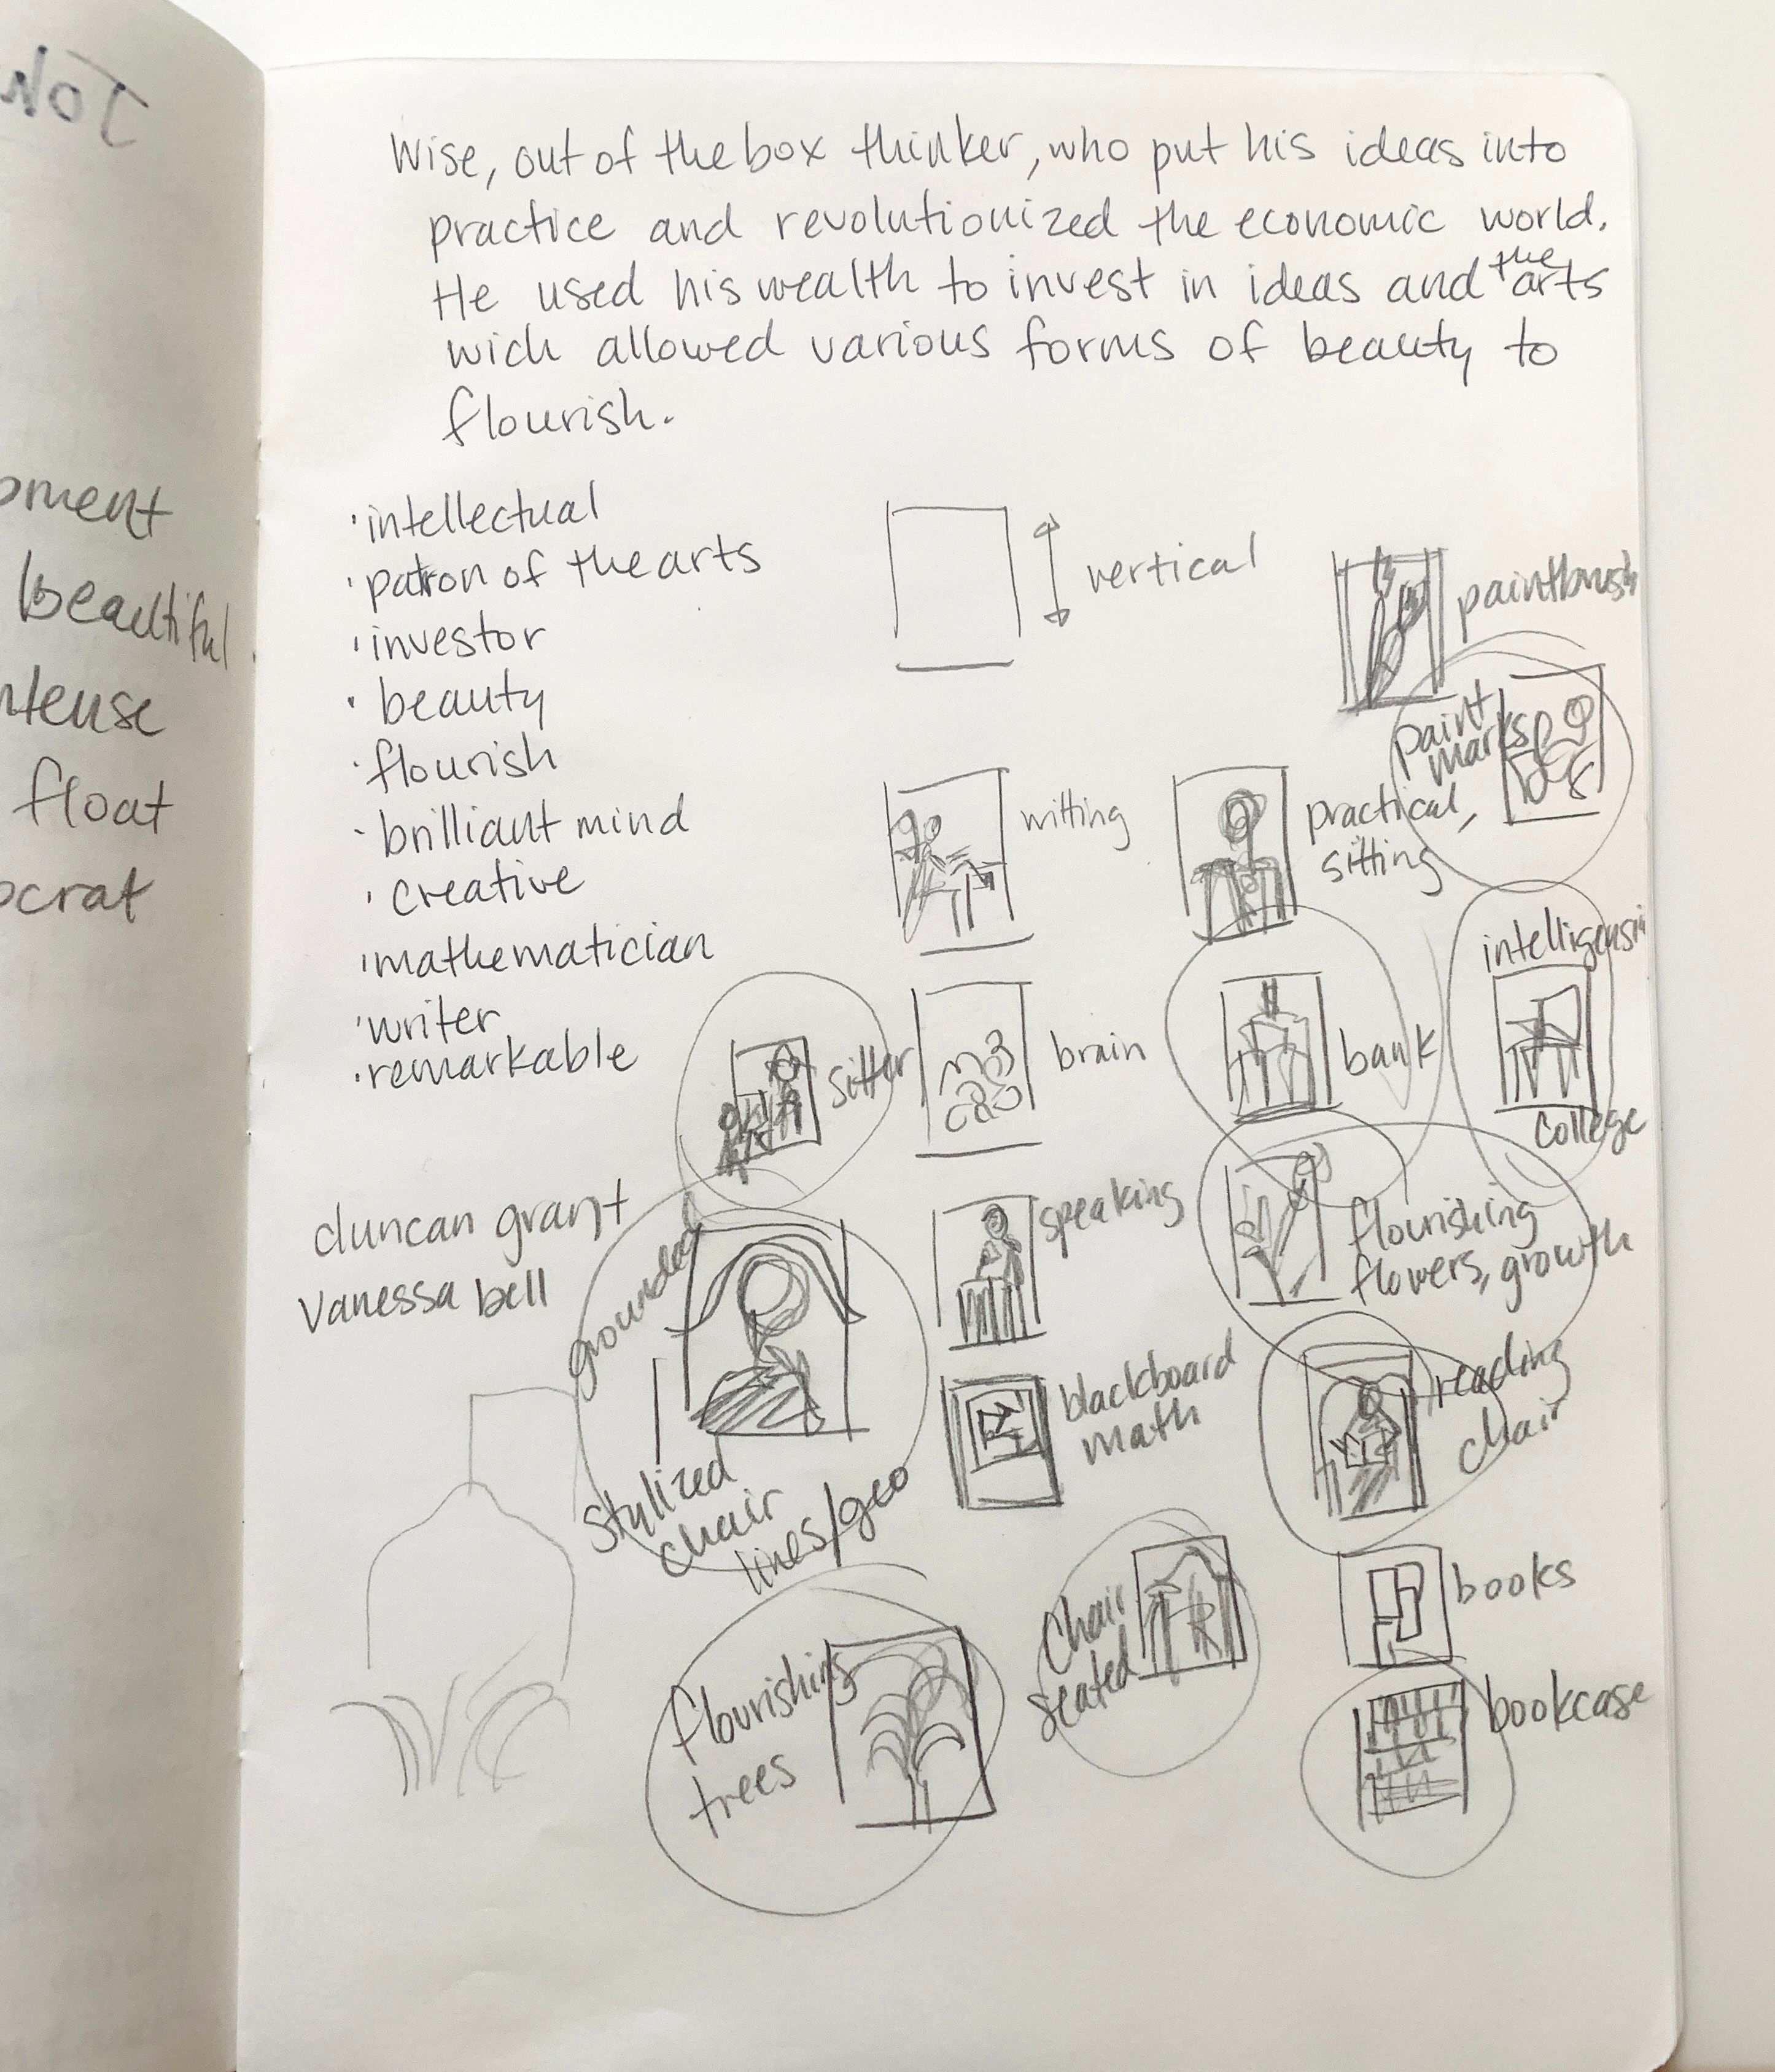 Wise, out of the box thinker, who put his ideas into
practice and revolutionized the economic world.
He used his wealth to invest in ideas and the arts
wich allowed various forms of beauty to
flourish.
· intellectual
· patron of the arts
· investor
· beauty
· flourish
· brilliant mind
· creative
· mathematician
· writer
· remarkable
duncan grant
vanessa bell
vertical
paintbrush
paint
marks
writting
practical,
sitting
sitter
brain
bank
college
grounded
speaking
flourishing
flowers, growth
stylized
chair
lines/geo
blackboard
math
reading
chair
flourishing
trees
chair
seated
books
bookcase
beautiful
float